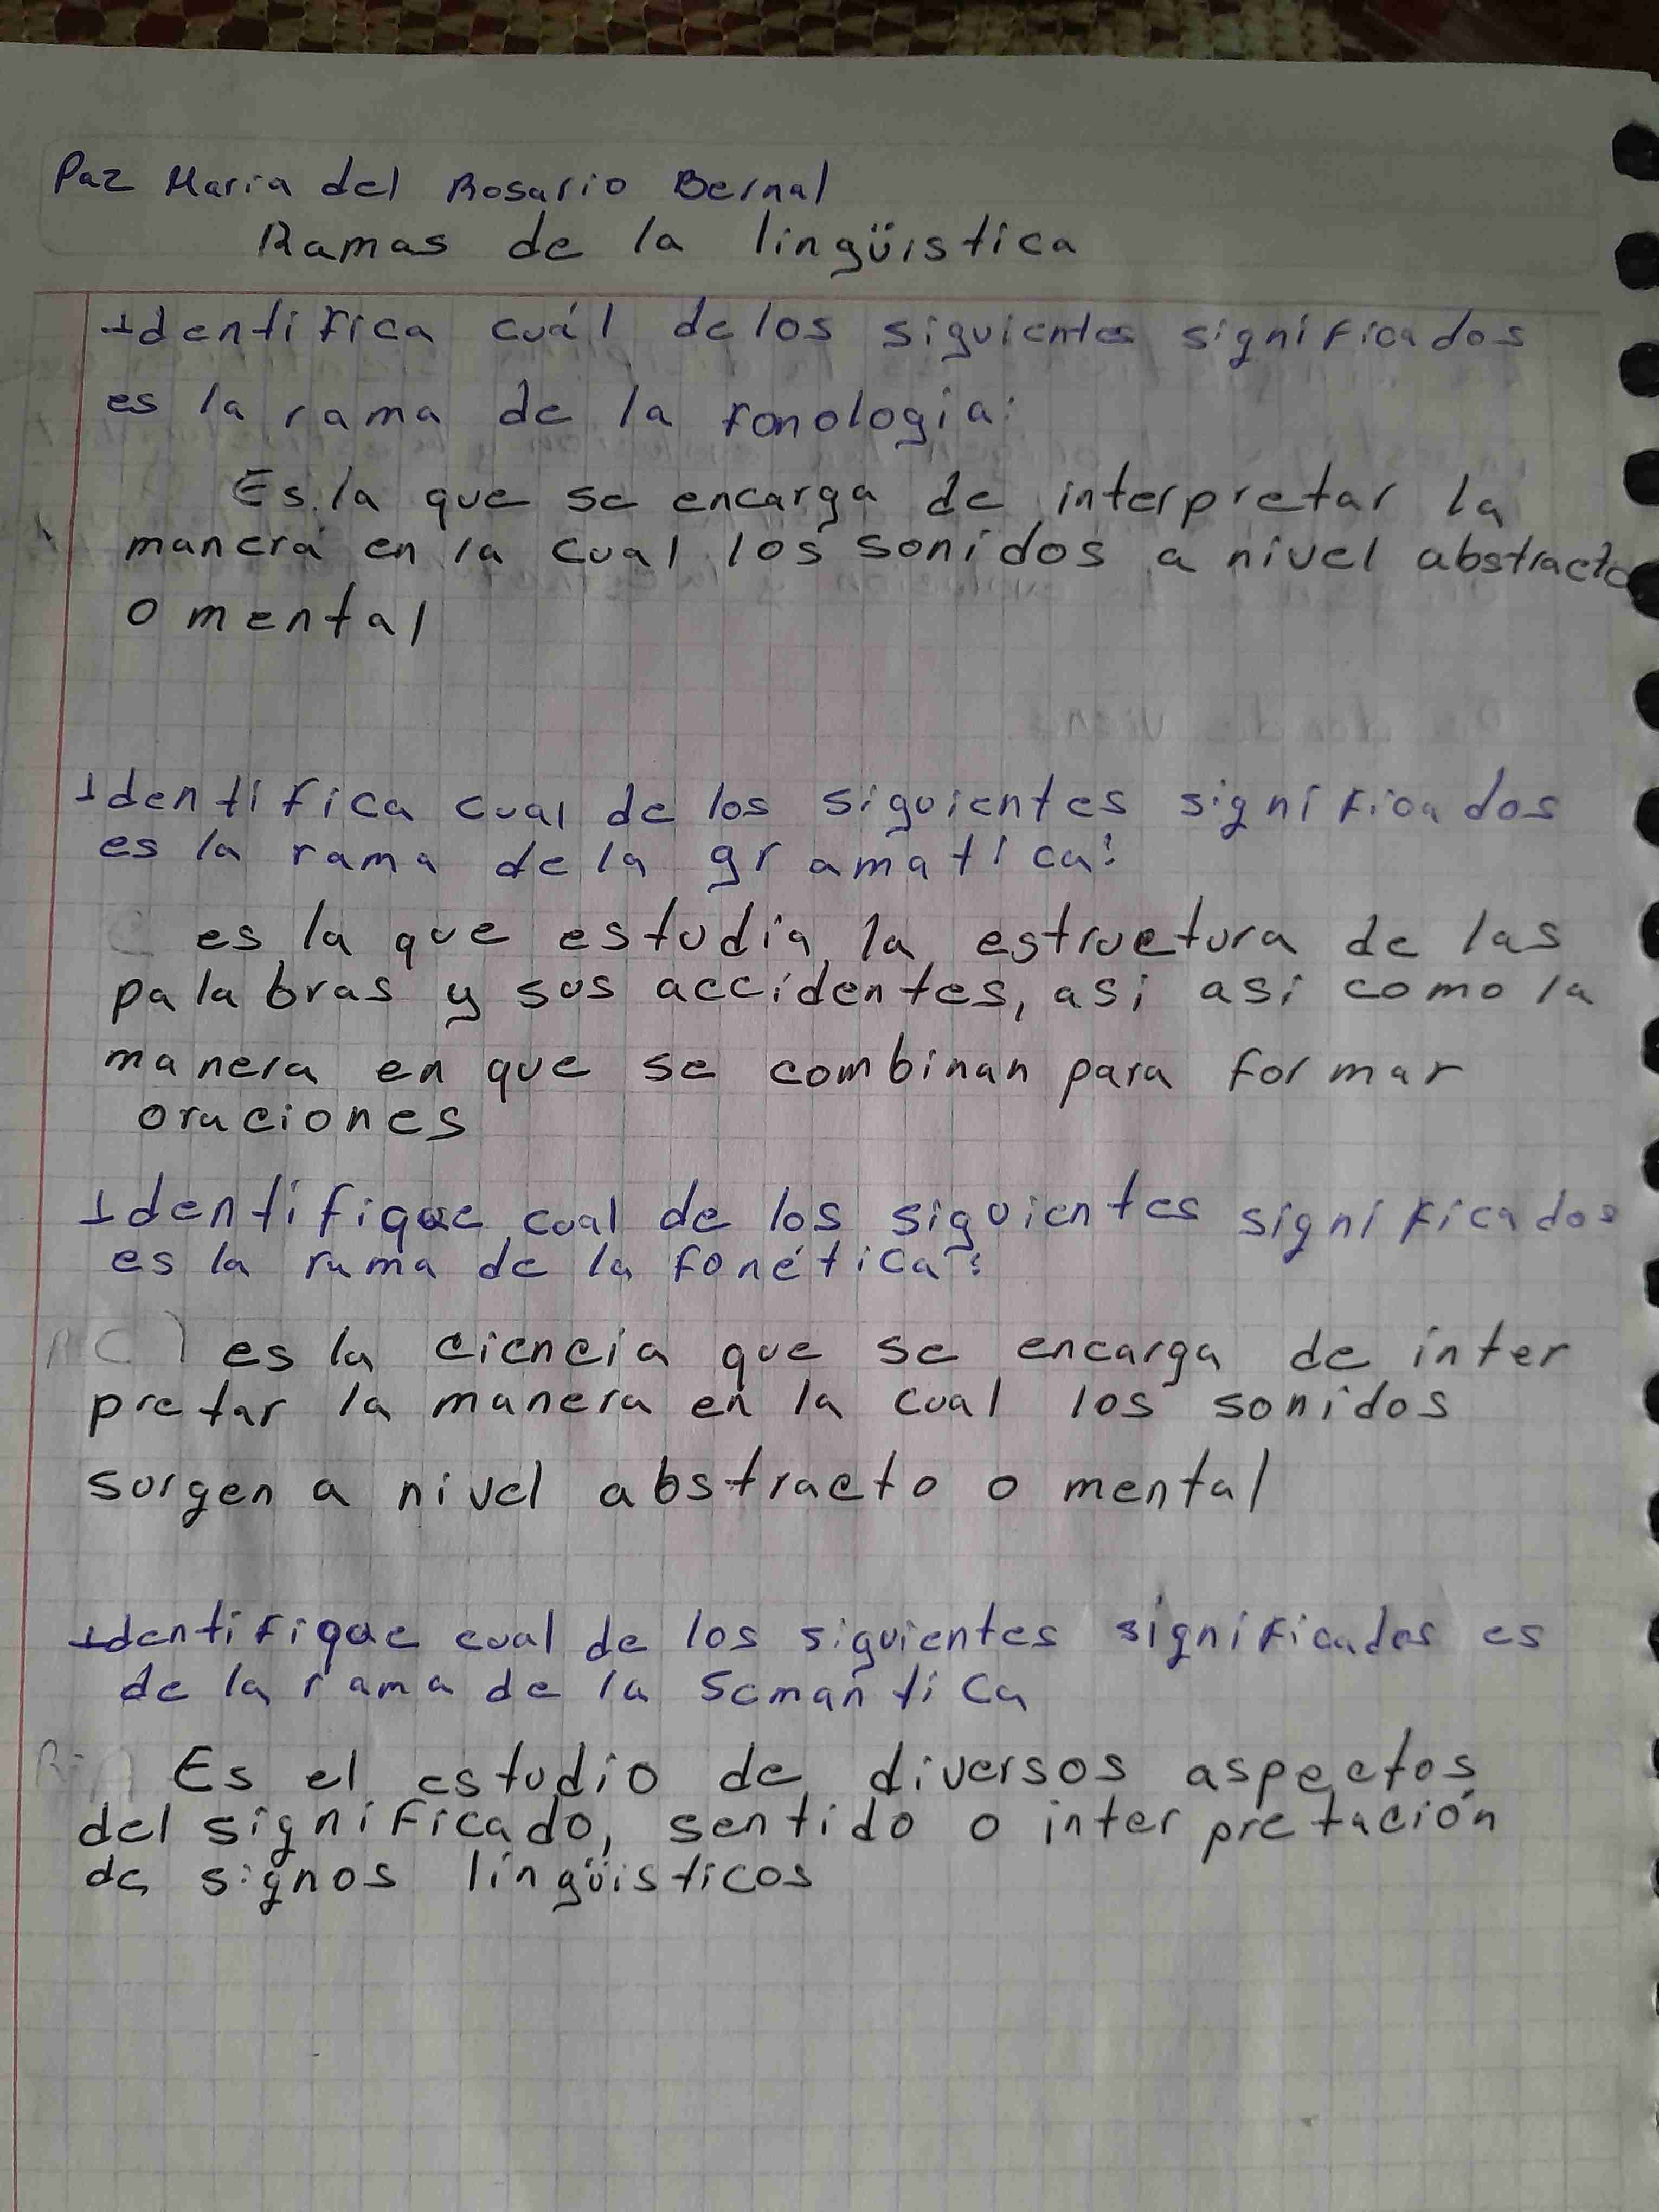 Paz Maria del Rosario Bernal
Ramas de la lingüistica
Identifica cuál de los siguientes significados
es la rama de la fonologia:
Es la que se encarga de interpretar la
manera en la cual los sonidos a nivel abstracto
o mental
Identifica cual de los siguientes significados
es la rama de la gramatica:
es la que estudia la estructura de las
palabras y sus accidentes, asi asi como la
manera en que se combinan para formar
oraciones
Identifique cual de los siguientes significados
es la rama de la fonética:
C) es la ciencia que se encarga de inter
pretar la manera en la cual los sonidos
surgen a nivel abstracto o mental
Identifique cual de los siguientes significados es
de la rama de la semantica
R= A Es el estudio de diversos aspectos
del significado, sentido o interpretación
de signos lingüisticos